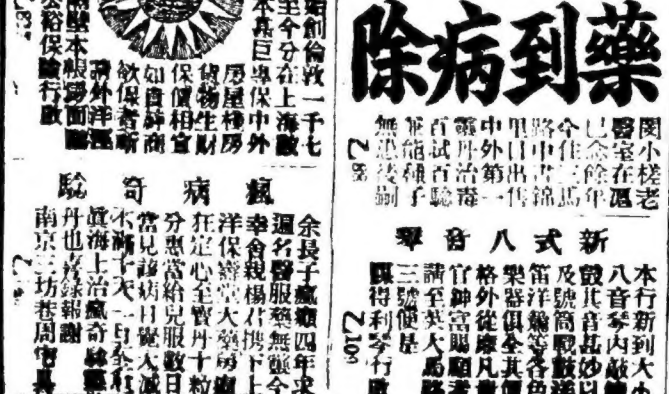 藥到病除
閔小槎老
醫室在滬
已念餘年
今住三馬
路中書錦
里目出售
中外第一
靈丹治毒
百試百驗
並能種子
無患後嗣
新式八音琴
本行新到大小
八音琴內敲
鼓其音甚妙以
及號筒戰鼓洋
笛洋簫等各色
樂器俱全其價
格外從廉凡貴
官紳富賜顧者
請至英大馬路
三號便是
謀得利琴行啟
始創倫敦一千七
至今分在上海敝
巨專保中外
房屋棧房
貨物生財
保價相宜
如貴紳商
欲保者祈
請外洋涇
本帳房面議
裕保險行啟
瘋病奇驗
余長子瘋癲四年求
過名醫服藥無靈今
幸會親楊君携下上
洋保壽堂大藥房瘋
狂定心至寶丹十粒
分惠當給兒服數日
當見該病日覺大減
不滿十天一旦全愈
真海上治瘋奇驗靈
丹也喜錄報謝
南京三坊巷周甯長